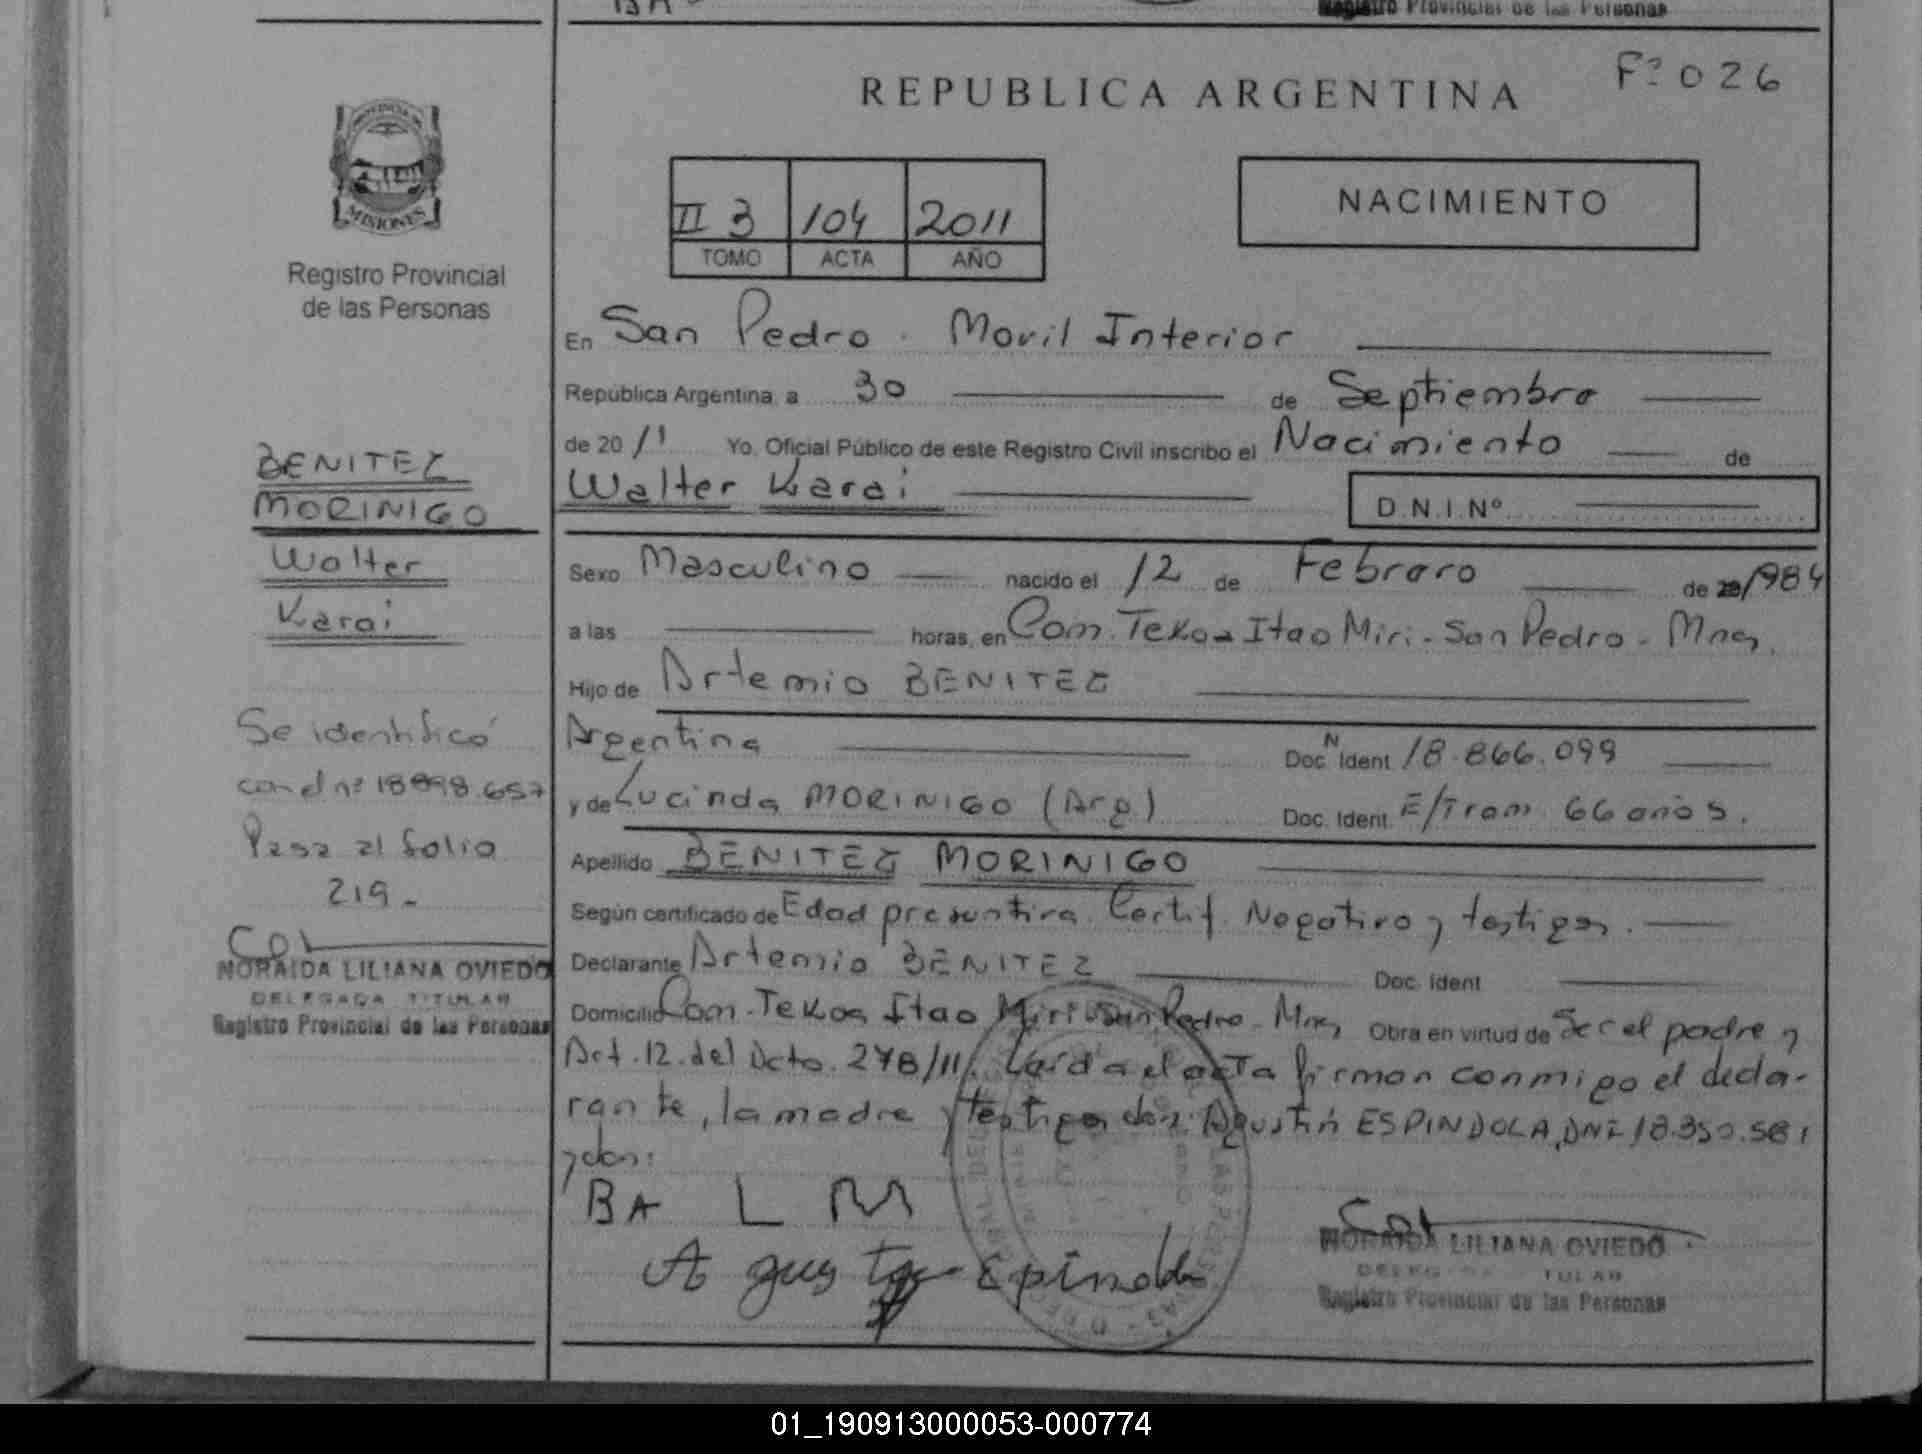 Registro Provincial de las Personas
Fº 026
REPUBLICA ARGENTINA
MISIONES
Registro Provincial
de las Personas
II 3 104 2011
TOMO ACTA AÑO
NACIMIENTO
En San Pedro. Movil Interior
República Argentina, a 30 de Septiembre
de 2011 Yo, Oficial Público de este Registro Civil inscribo el Nacimiento de
Walter Karai
D.N.I.Nº
Sexo Masculino nacido el 12 de Febrero de 1984
a las horas, en Com. Tekoa Itao Miri - San Pedro - Mnes.
Hijo de Artemio BENITEZ
Argentina Doc. Ident N 18.866.099
y de Lucinda MORINIGO (Arg) Doc. Ident. E/Tram. 66 años.
Apellido BENITEZ MORINIGO
Según certificado de Edad presuntiva. Certif. Negativo y testigos.
Declarante Artemio BENITEZ Doc. Ident
Domicilio Com. Tekoa Itao Miri San Pedro - Mnes Obra en virtud de Ser el padre y
Art. 12. del Dcto. 278/11. Leida el acta firman conmigo el decla-
rante, la madre y testigos don: Agustín ESPINDOLA, DNI 18.350.581
y don:
BA L M
Agustin Espindola
NORAIDA LILIANA OVIEDO
DELEGADA TITULAR
Registro Provincial de las Personas
BENITEZ
MORINIGO
Walter
Karai
Se identificó
con el nº 18898.657
Pasa al folio
219-
NORAIDA LILIANA OVIEDO
DELEGADA TITULAR
Registro Provincial de las Personas
01_190913000053-000774